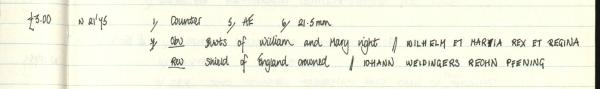 £3.00 N 21'45 1, Counter 5, AE 6, 21.5mm
4, Obv Busts of William and Mary right // WILHELM ET MARIA REX ET REGINA
Rev Shield of England crowned // IOHANN WEIDINGERS RECHN PFENING